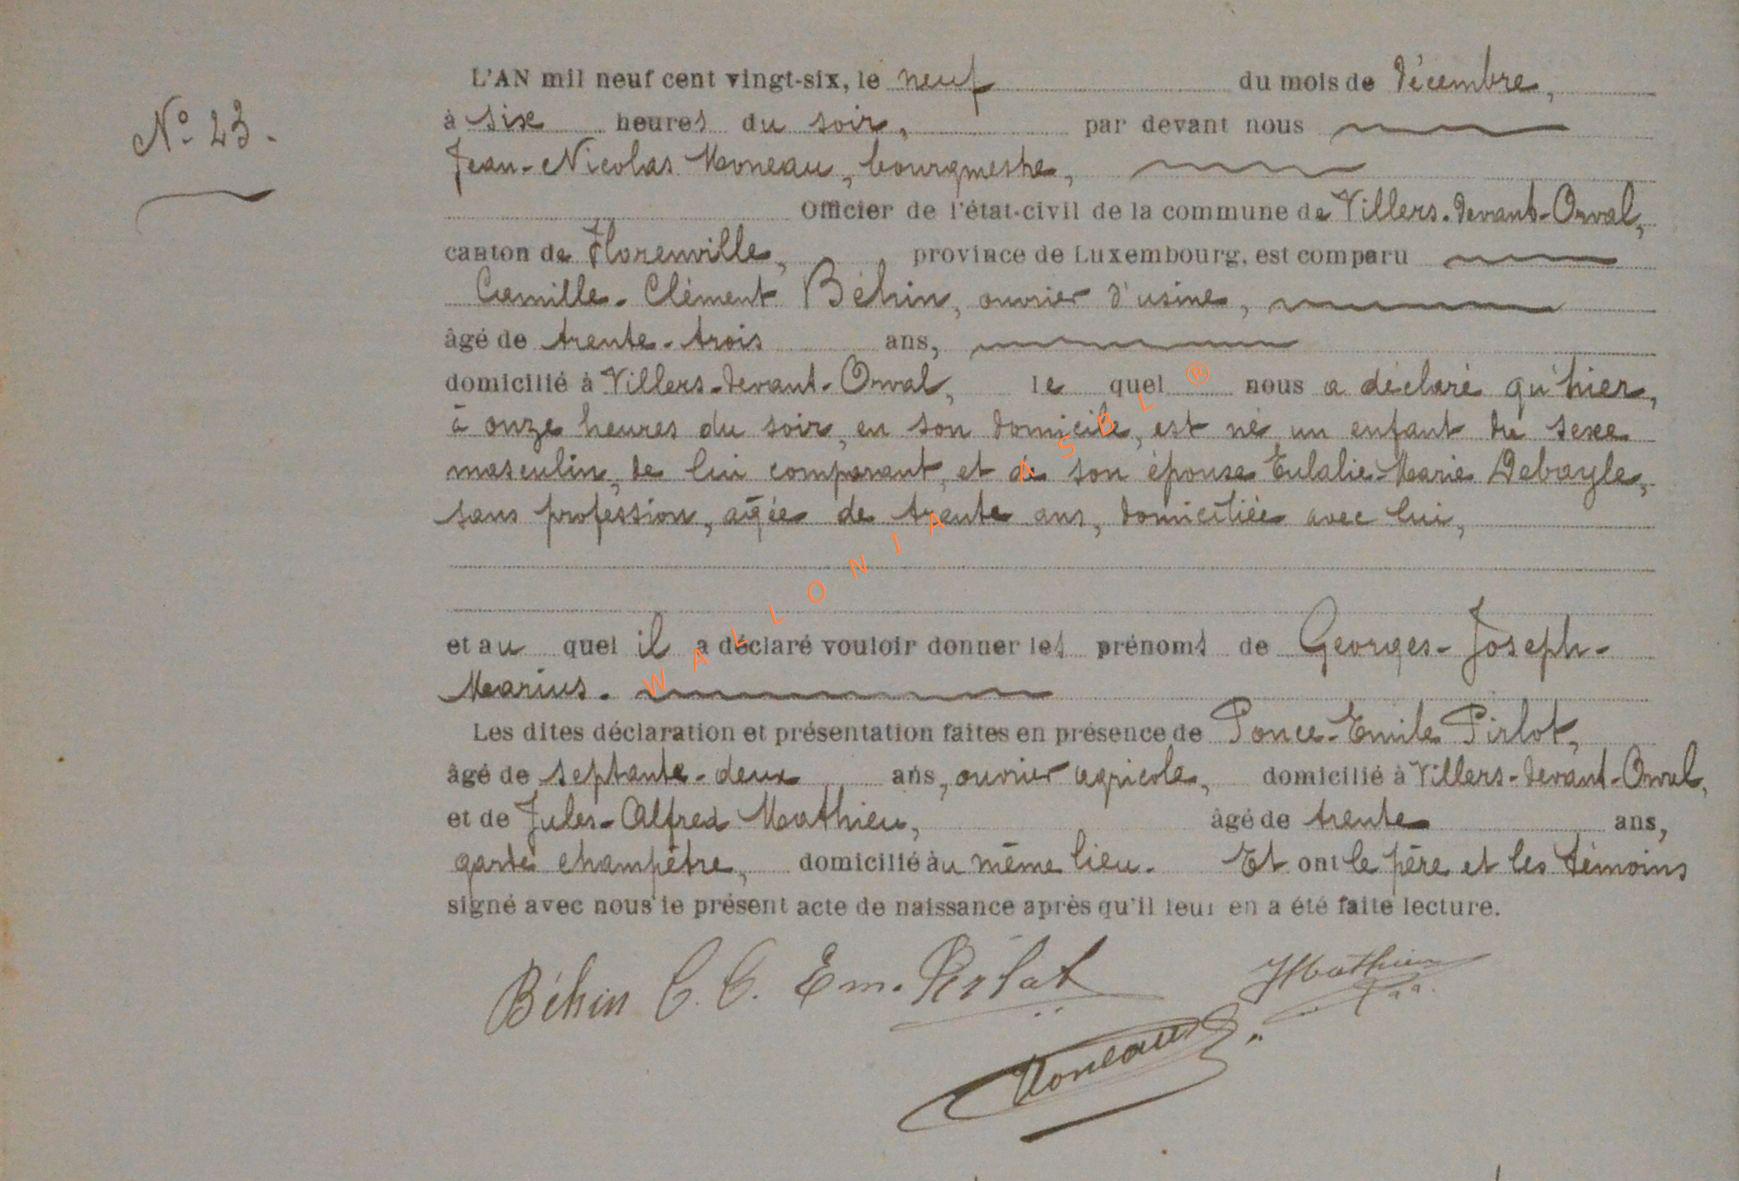 N° 23.
L'AN mil neuf cent vingt-six, le neuf du mois de décembre,
à six heures du soir, par devant nous
Jean-Nicolas Moneau, bourgmestre,
Officier de l'état-civil de la commune de Villers-devant-Orval,
canton de Florenville, province de Luxembourg, est comparu
Camille-Clément Béhin, ouvrier d'usine,
âgé de trente-trois ans,
domicilié à Villers-devant-Orval, le quel nous a déclaré qu'hier,
à onze heures du soir, en son domicile, est né un enfant du sexe
masculin, de lui comparant, et de son épouse Eulalie-Marie Debayle,
sans profession, agée de trente ans, domiciliée avec lui,
et au quel il a déclaré vouloir donner les prénoms de Georges-Joseph-
Marius.
Les dites déclaration et présentation faites en présence de Ponce-Emile Pirlot,
âgé de septante-deux ans, ouvrier agricole, domicilié à Villers-devant-Orval,
et de Jules-Alfred Mathieu, âgé de trente ans,
garde champêtre, domicilié au même lieu. Et ont le père et les témoins
signé avec nous le présent acte de naissance après qu'il leur en a été faite lecture.
Béhin C. C. Em. Pirlot JMathieu
Moneau
WALLONIA ASBL ®